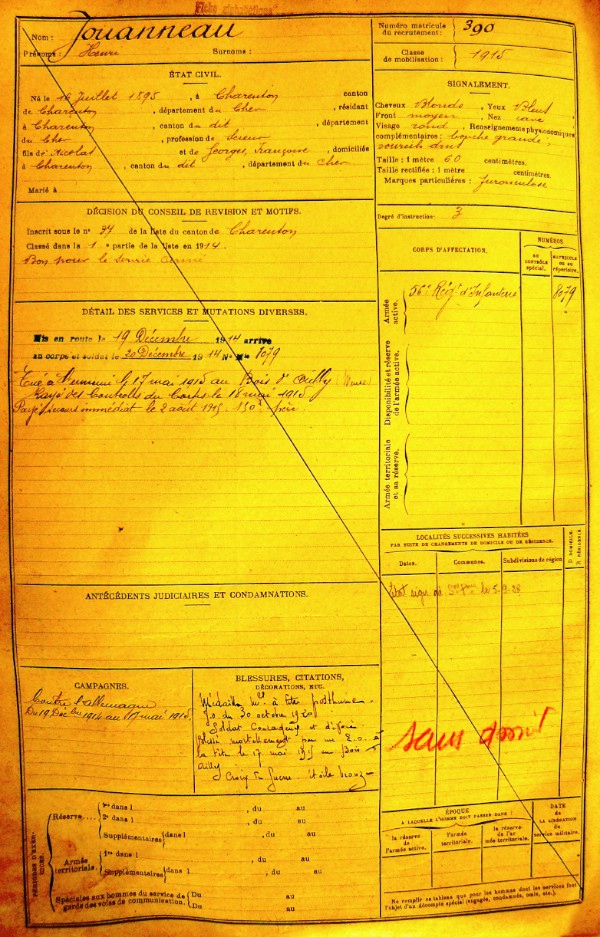 Fiche alphabétique
Nom : Jouanneau
Prénoms : Henri Surnome :
Numéro matricule du recrutement : 390
Classe de mobilisation : 1915
ÉTAT CIVIL.
Né le 16 Juillet 1895, à Charenton canton
de Charenton, département du Cher, résidant
à Charenton, canton du dit, département
du Cher, profession de
fils de Nicolas et de Georges, Françoise, domiciliés
à Charenton, canton du dit, département du Cher
Marié à
SIGNALEMENT.
Cheveux Blonds, Yeux Bleus
Front moyen, Nez cave
Visage rond, Renseignements physionomiques
complémentaires : bouche grande
Taille : 1 mètre 60 centimètres.
Taille rectifiée : 1 mètre centimètres.
Marques particulières :
Degré d'instruction : 3
DÉCISION DU CONSEIL DE REVISION ET MOTIFS.
Inscrit sous le n° 34 de la liste du canton de Charenton
Classé dans la 1e partie de la liste en 1914.
Bon pour le service armé
CORPS D'AFFECTATION.
NUMÉROS
AU CONTRÔLE SPÉCIAL.
MATRICULE OU AU RÉPERTOIRE.
Armée active.
56e Régt d'Infanterie
8079
Disponibilité et réserve de l'armée active.
Armée territoriale et sa réserve.
DÉTAIL DES SERVICES ET MUTATIONS DIVERSES.
Mis en route le 19 Décembre 1914 arrivé
au corps et soldat le 20 Décembre 1914 N° Mle 8079
Tué à l'ennemi le 17 mai 1915 au Bois d'Ailly (Meuse)
Rayé des Controles du Corps le 18 mai 1915
Payé secours immédiat le 2 août 1915 150f père
LOCALITÉS SUCCESSIVES HABITÉES
PAR SUITE DE CHANGEMENTS DE DOMICILE OU DE RÉSIDENCE.
Dates. Communes. Subdivisions de région
D. DOMICILE.
R. RÉSIDENCE.
ANTÉCÉDENTS JUDICIAIRES ET CONDAMNATIONS.
CAMPAGNES.
Contre l'allemagne
Du 19 Décbre 1914 au 17 mai 1915
BLESSURES, CITATIONS,
DÉCORATIONS, ETC.
Médaille Mre à titre posthume
J.O. du 30 octobre 1920
Soldat courageux et dévoué
Blessé mortellement par un E.O. à
la tête le 17 mai 1915 au Bois d'
Ailly
Croix de Guerre Etoile
sans droit
PÉRIODES D'EXERCICES
Réserve
1re dans l , du au
2e dans l , du au
Supplémentaires dans l , du au
Armée territoriale.
1re dans l , du au
Supplémentaires dans l , du au
Spéciales aux hommes du service de garde des voies de communication. Du au
Du au
ÉPOQUE
À LAQUELLE L'HOMME DOIT PASSER DANS :
la réserve de l'armée active.
l'armée territoriale.
la réserve de l'armée territoriale.
DATE
DE LA LIBÉRATION DU service militaire.
Ne remplir ce tableau que pour les hommes dont les services font
l'objet d'un décompte spécial (engagés, condamnés, omis, etc.).